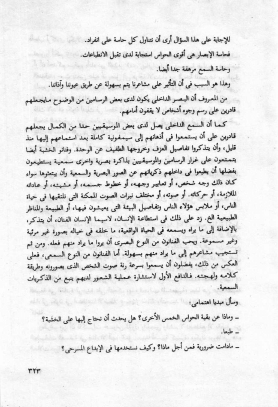 للإجابة على هذا السؤال أرى أن نتناول كل حاسة على انفراد.
فحاسة الإبصار هى أقوى الحواس استجابة لدى تقبل الانطباعات.
وحاسة السمع مرهفة جدا أيضا.
وهذا هو السبب فى أن التأثير على مشاعرنا يتم بسهولة عن طريق عيوننا وآذاننا.
من المعروف أن البصر الداخلى يكون لدى بعض الرسامين من الوضوح مايجعلهم
قادرين على رسم وجوه أشخاص لا يقفون أمامهم.
كما أن السمع الداخلى يصل لدى بعض الموسيقيين حدا من الكمال يجعلهم
قادرين على أن يستمعوا فى أذهانهم إلى سيمفونية كاملة بعد استماعهم إليها منذ
قليل، وأن يتذكروا تفاصيل العزف وخروجها الطفيف عن الوحدة. وفنانو الخشبة أيضا
يتمتعون على غرار الرسامين والموسيقيين بذاكرة بصرية وأخرى سمعية يستطيعون
بفضلها أن يطبعوا فى داخلهم ذكرياتهم عن الصور البصرية والسمعية وأن يبعثوها سواء
كان ذلك وجه شخص، أو تعابير وجهه، أو خطوط جسمه، أو مشيته، أو عاداته
الملازمة، أو حركاته، أو صوته، أو مختلف نبرات الصوت الممكنة التى نلتقيها فى حياة
الناس، أو ملابس هؤلاء الناس وتفاصيل البيئة التى يعيشون فيها، أو الطبيعة والمناظر
الطبيعية الخ. زد على ذلك فى استطاعة الإنسان، لاسيما الإنسان الفنان، أن يتذكر،
بالإضافة إلى ما يراه ويسمعه فى الحياة الواقعية، ما خلقه فى خياله بصورة غير مرئية
وغير مسموعة. ويحب الفنانون من النوع البصرى أن يروا ما يراد منهم فعله. ومن ثم
تستجيب مشاعرهم إلى ما يراد منهم بسهولة. أما الفنانون من النوع السمعى، فعلى
العكس من ذلك، يفضلون أن يسمعوا بسرعة رنة صوت الشخص الذى يصورونه وطريقة
كلامه ولهجته. فالدافع الأول لاستشارة عملية الشعور لديهم ينبع من الذكريات
السمعية.
وسأل مبديا اهتمامى:
– وماذا عن بقية الحواس الخمس الأخرى؟ هل يحدث أن نحتاج إليها على الخشبة؟
– طبعا.
– مادامت ضرورية فمن أجل ماذا؟ وكيف نستخدمها فى الإبداع المسرحى؟
٣٢٣